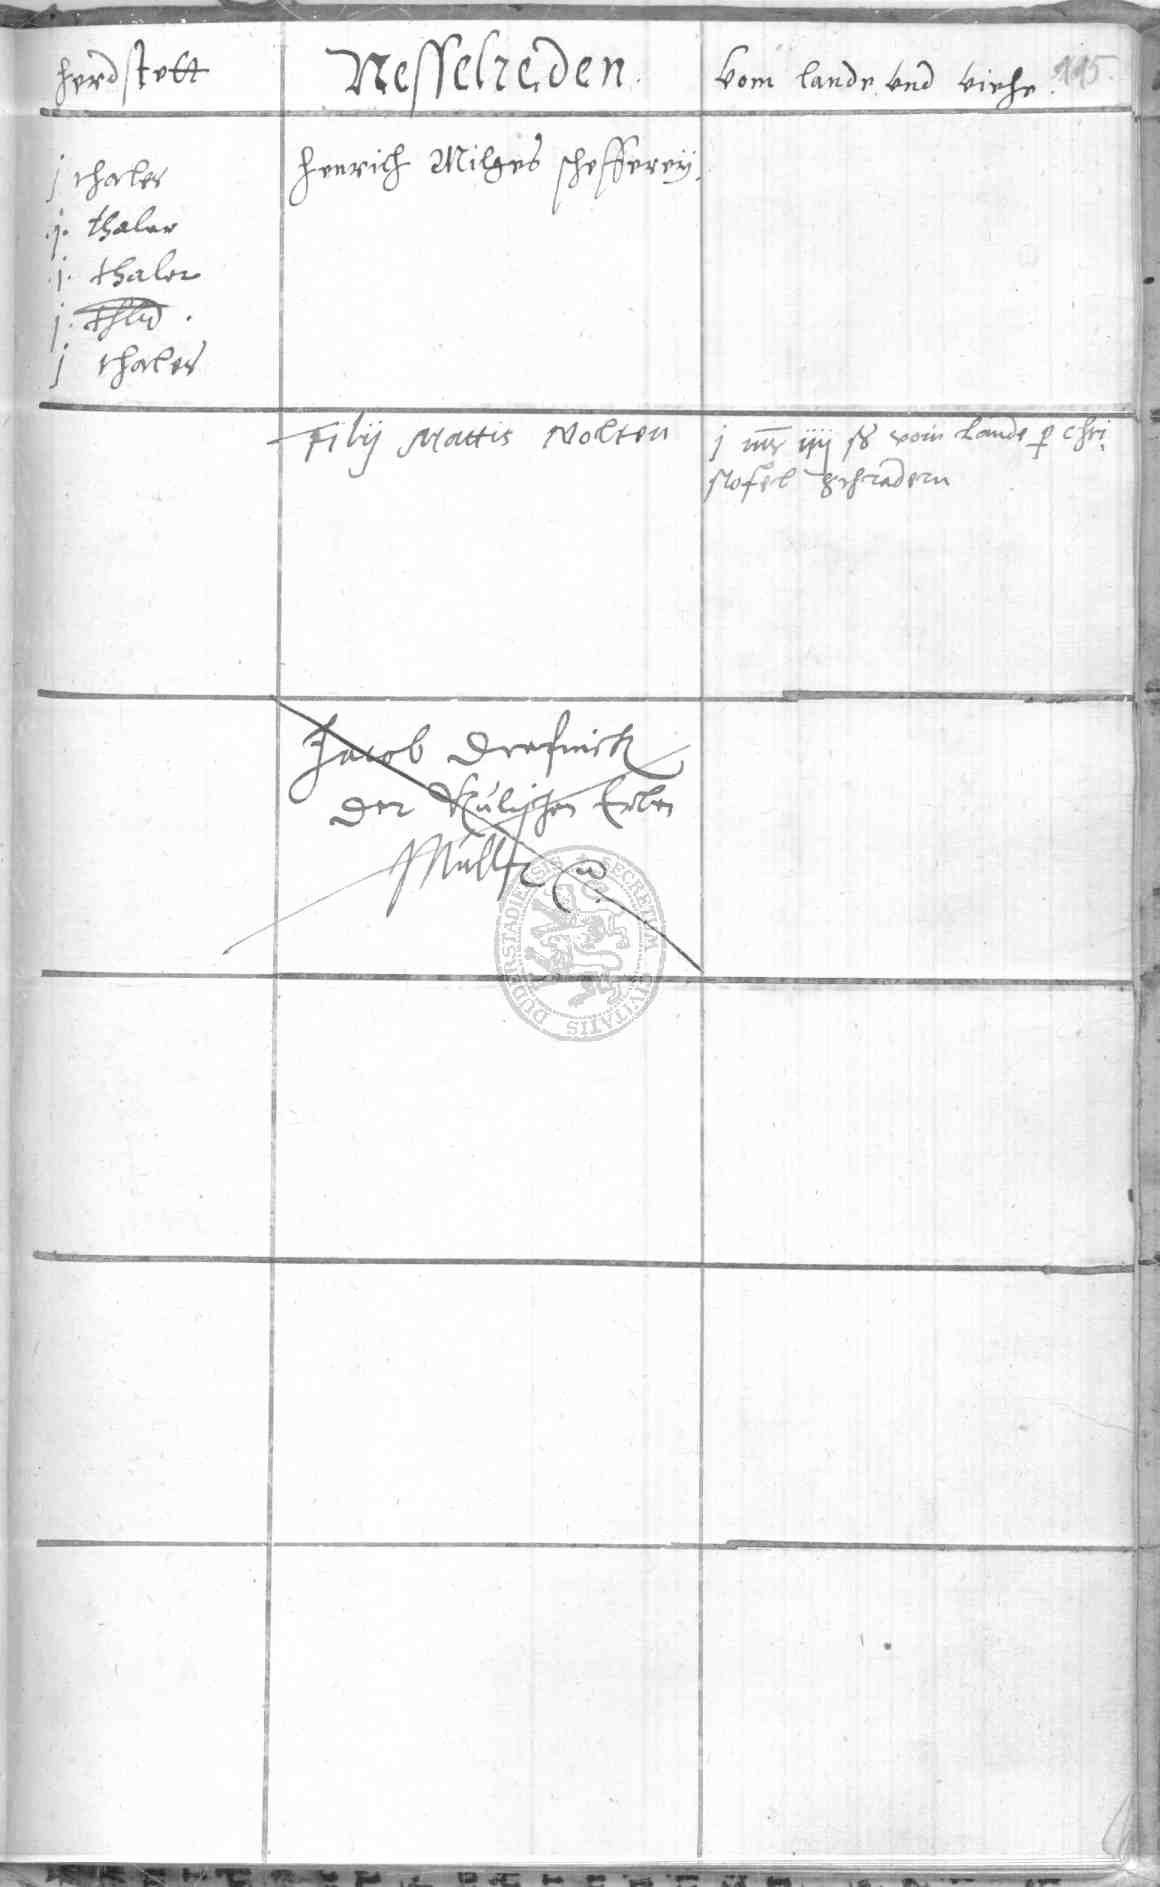 herdstett
Nesselreden.
Vom lande vnd viehe.
115.
j thaler
.j. thaler
.j. thaler
j.
j thaler
Henrich Milges schefferey.
Filij Mattis Nolten
j mr iiij ß vom Lande p Chri.
stofel Schradern
Jacob
Der Erben
Müller
SECRETUM CIVITATIS DUDERSTADIENSIS